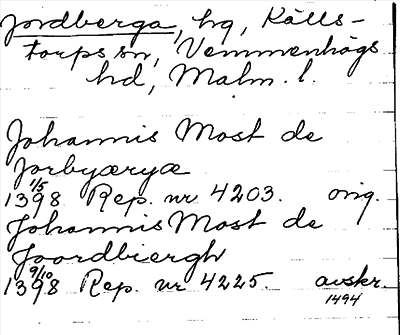 Jordberga, hg, Källs-
torps sn, Vemmenhögs
hd, Malm. l.
Johannis Most de
Jorbyæryæ
1398 1/5 Rep. nr 4203. orig.
Johannis Most de
Joordbiergh
1398 9/10 Rep. nr 4225. avskr.
1494